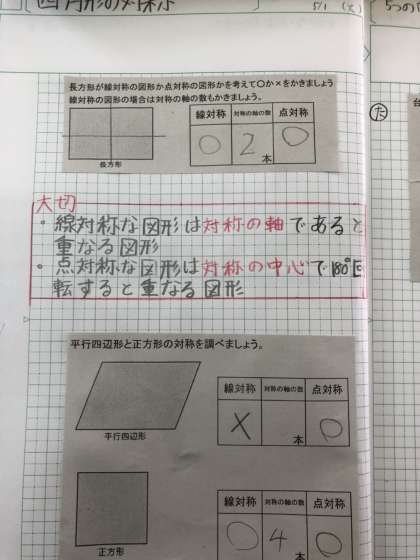 四角形の対称
5/1
長方形が線対称の図形か点対称の図形かを考えて○か×をかきましょう
線対称の図形の場合は対称の軸の数もかきましょう。
線対称 対称の軸の数 点対称
○ 2本 ○
長方形
大切
・線対称な図形は対称の軸であると
重なる図形
・点対称な図形は対称の中心で180°回
転すると重なる図形
た
平行四辺形と正方形の対称を調べましょう。
線対称 対称の軸の数 点対称
× 本 ○
平行四辺形
線対称 対称の軸の数 点対称
○ 4本 ○
正方形